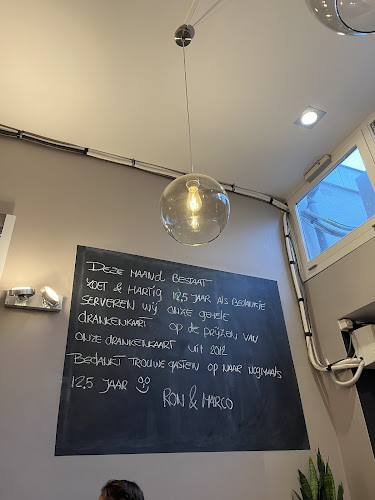 DEZE MAAND BESTAAT
ZOET & HARTIG 12,5 JAAR ALS BEDANKJE
SERVEREN WIJ ONZE GEHELE
DRANKENKAART OP DE PRIJZEN VAN
ONZE DRANKENKAART UIT 2012
BEDANKT TROUWE GASTEN OP NAAR NOGMAALS
12.5 JAAR
RON & MARCO